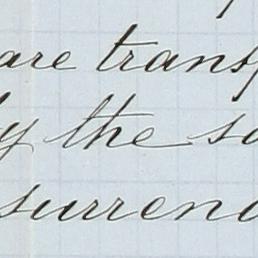 are transf
by the sa
surrend